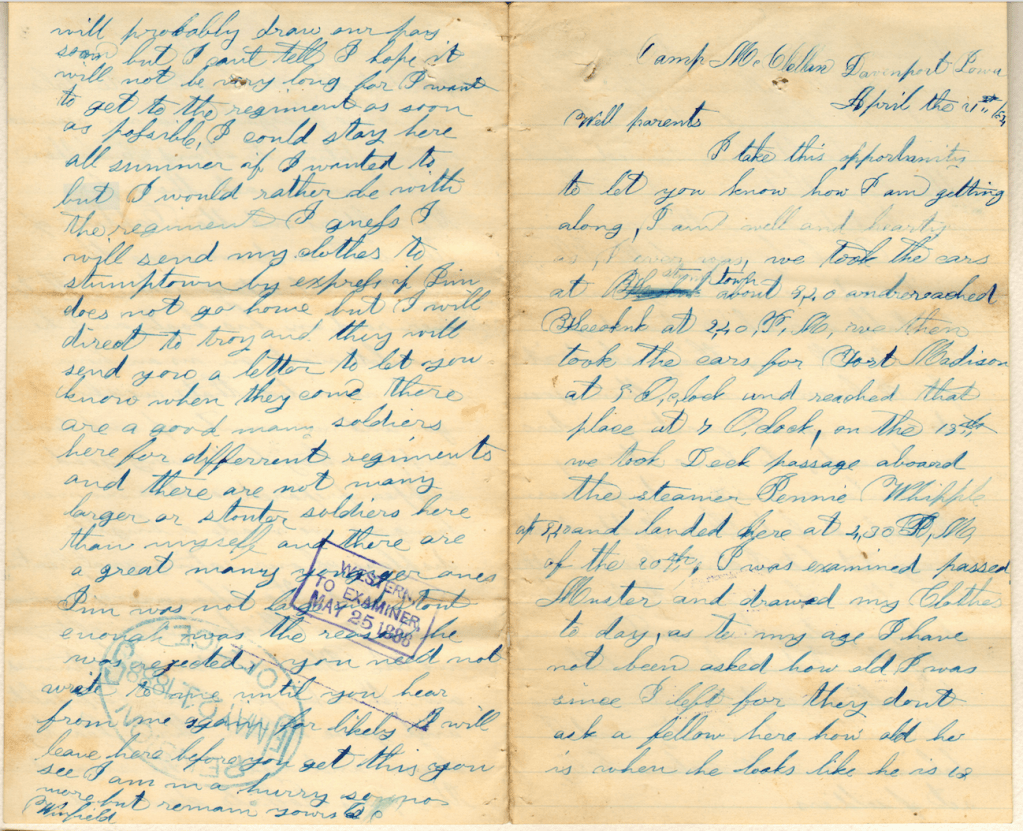 Camp McClellan Davenport Iowa
April the 21st /64
Well parents
I take this opportunity
to let you know how I am getting
along, I am well and hearty
as I ever was, we took the cars
at town about 9,20 and reached
Keeokuk at 2,40, P, M, we then
took the cars for Fort Madison
at 5 O,clock and reached that
place at 7 O,clock, on the 19th
we took Deck passage aboard
the steamer Jennie Whipple
at and landed here at 4,30 P, M,
of the 20th, I was examined passed
Muster and drawed my Clothes
to day, as to my age I have
not been asked how old I was
since I left for they dont
ask a fellow here how old he
is when he looks like he is 18
will probably draw our pay
soon but I cant tell I hope it
will not be very long for I want
to get to the regiment as soon
as posable, I could stay here
all summer if I wanted to
but I would rather be with
the regiment I guess I
will send my clothes to
stumptown by express if Jim
does not go home but I will
direct to troy and they will
send you a letter to let you
know when they come there
are a good many soldiers
here for differrent regiments
and there are not many
larger or stouter soldiers here
than myself and there are
a great many younger ones
Jim was not stout
enough was the reason he
was rejected you need not
write to me until you hear
from me again for likely I will
leave here before you get this you
see I am in a hurry so no
more but remain yours
Winfield
WESTERN
TO EXAMINER,
MAY 25 1888
OFFICE